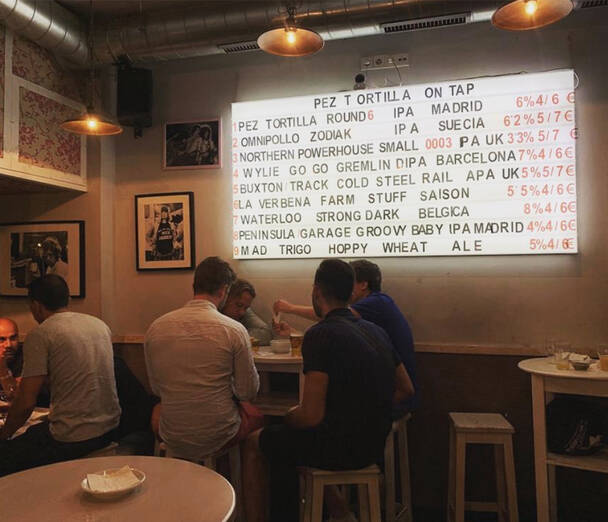 PEZ TORTILLA ON TAP
1 PEZ TORTILLA ROUND6 IPA MADRID 6% 4/6 €
2 OMNIPOLLO ZODIAK IPA SUECIA 6'2% 5/7 €
3 NORTHERN POWERHOUSE SMALL 0003 IPA UK 3'3% 5/7 €
4 WYLIE GO GO GREMLIN DIPA BARCELONA 7% 4/6 €
5 BUXTON/TRACK COLD STEEL RAIL APA UK 5% 5/7 €
6 LA VERBENA FARM STUFF SAISON 5'5% 4/6 €
7 WATERLOO STRONG DARK BELGICA 8% 4/6 €
8 PENINSULA/GARAGE GROOVY BABY IPA MADRID 4% 4/6 €
9 MAD TRIGO HOPPY WHEAT ALE 5% 4/6 €